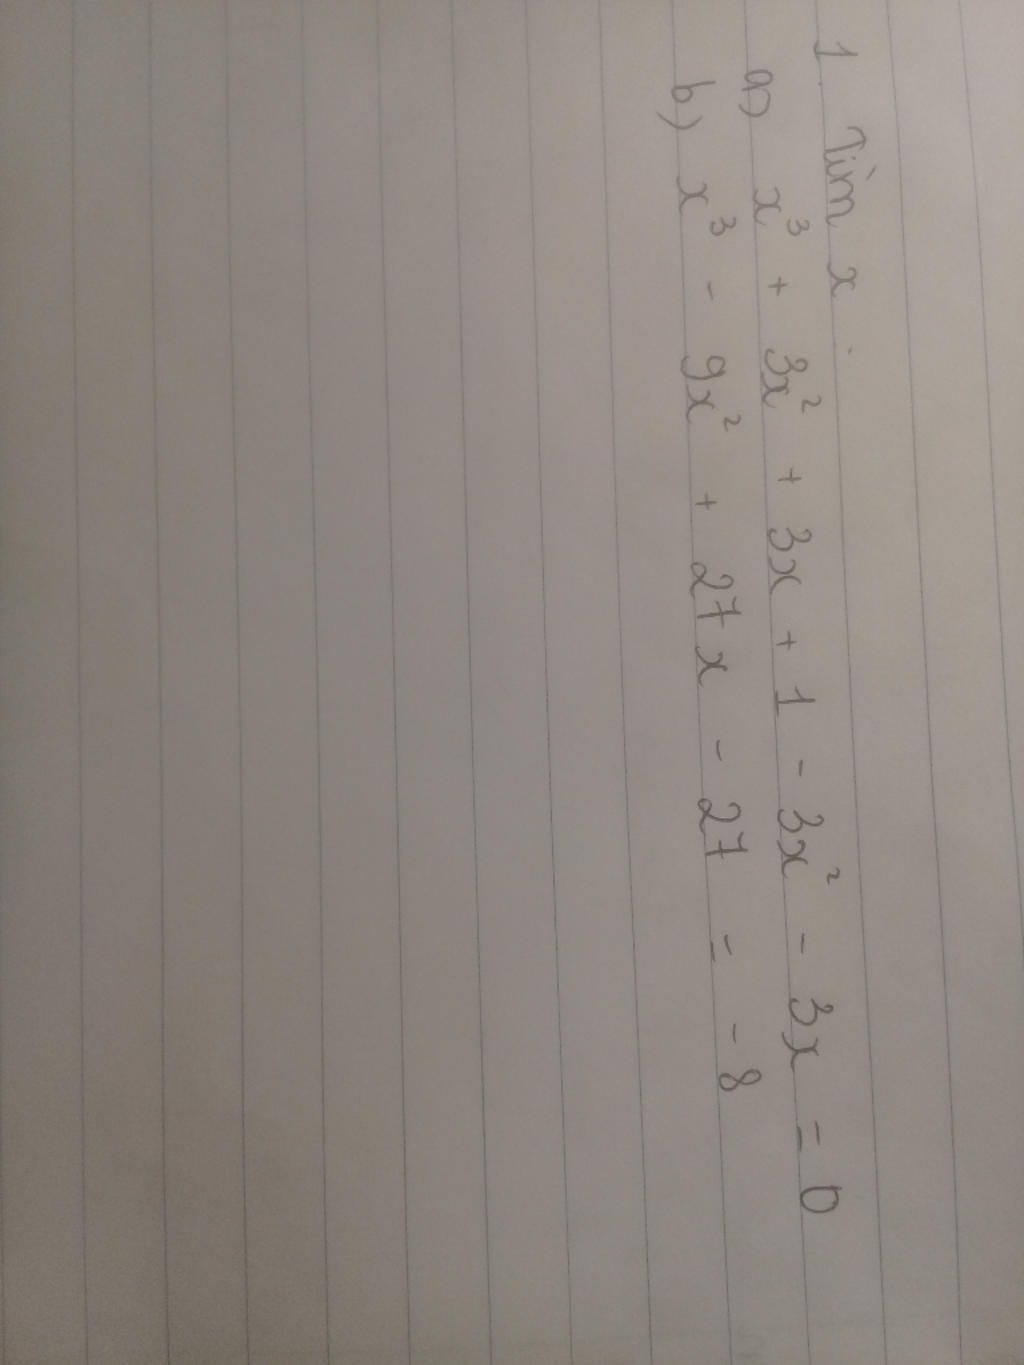 1. Tìm x.
a) x³ + 3x² + 3x + 1 - 3x² - 3x = 0
b) x³ - 9x² + 27x - 27 = -8